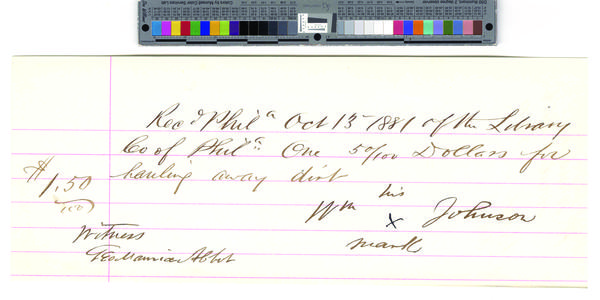 Rec'd Phila Oct 13 1881 of the Library
Co of Phila. One 50/100 Dollars for
hauling away dirt
$1.50
his
Wm X Johnson
mark
Witness
Abbot